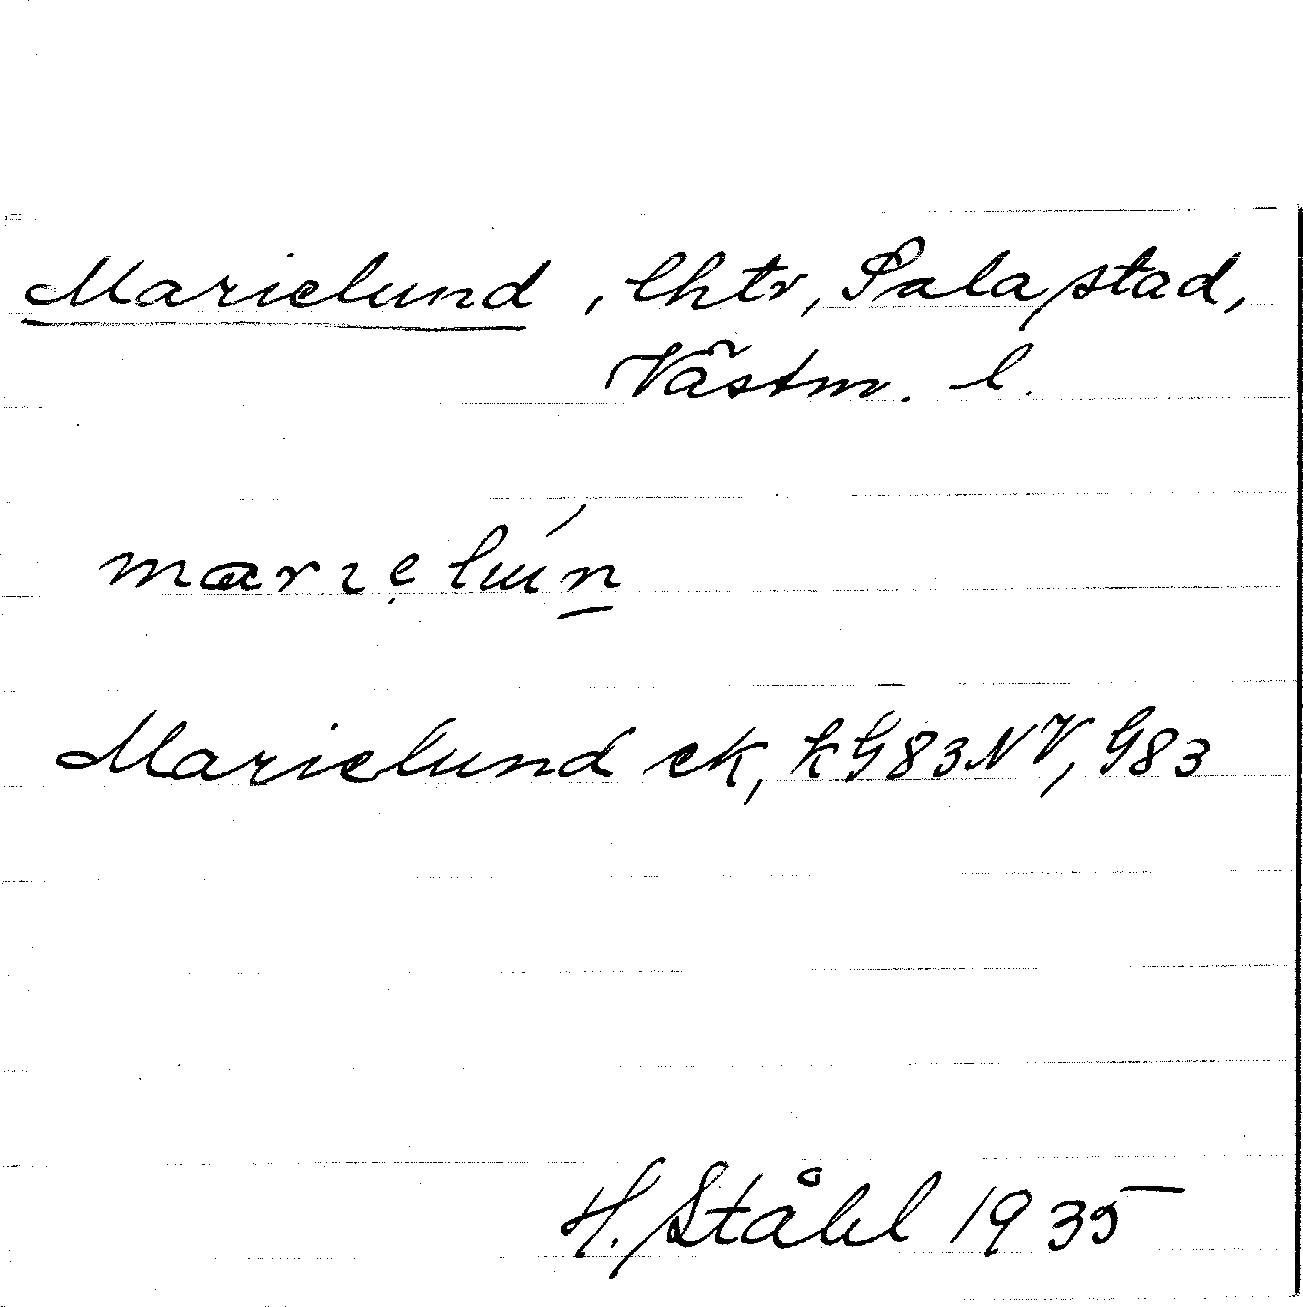 Marielund, lhtr, Sala stad,
Västm. l.
marıe̩ luńn̲
Marielund ek, kG83NV, G83
H. Ståhl 1935